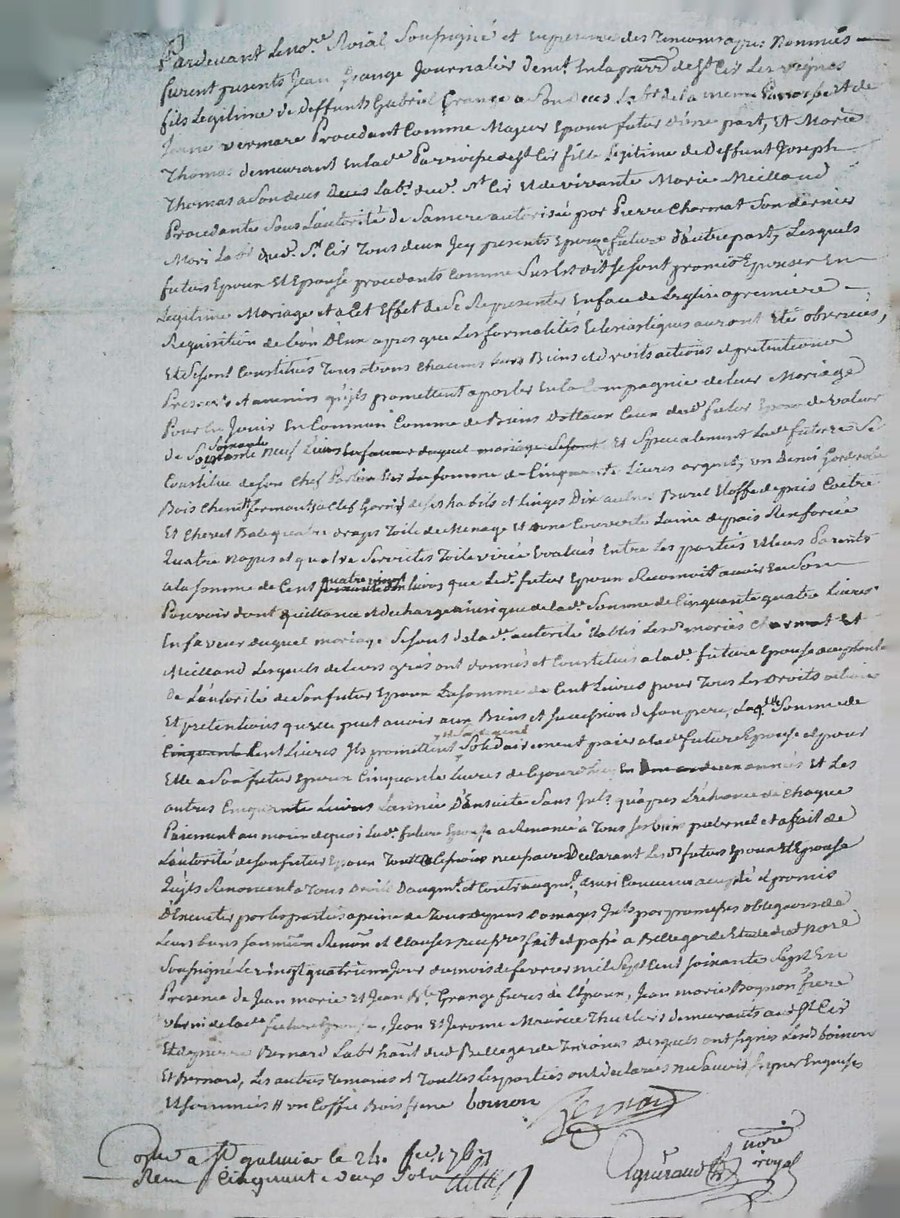 Pardevant le nore Roial Soussigné et en presence des temoins apres Nommés
furent presents Jean Grange Journalier demt en la parre de st Cir Les vignes
fils Legitime de deffunts Gabriel Grange a Son deces Labr de la meme Parroisse et de
Jeanne vermare Procedant Comme Majeur Epoux futur d'une part, Et Marie
Thomas demeurant En lade Parroisse de st Cir fille Legitime de Deffunt Joseph
Thomas a Son deces Labr dud. st Cir Et de vivante Marie Meilland
Procedante Sous L'autorité de Sa mere autorisée par Pierre Charmat Son dernier
Mari Labr dud. St Cir Tous deux Icy presents Epouse future d'autre part, Lesquels
futurs Epoux Et Epouse procedants Comme Sus Est dit se sont promis Epouser En
Legitime Mariage et a Cet Effet de Se Representer En face de Leglise a premiere
Requisition de L'un D'Eux apres que Les formalités Eclesiastiques auront Eté observées,
Et se sont Constitués Tous et uns Chacuns leurs Biens et droits actions et pretentions
Presents et avenir qu'ils promettent aporter En la Compagnie de leur Mariage
Pour En Jouir En Commun Comme de Biens Dottaux Ceux dud futur Epoux de valeur
de Soixante neuf Livres Et Specialement Lade future Se
Constitue de son Chef La Somme de Cinquante Livres argent, un Benoi Garderobe
Bois Chene fermant a Clef Garni de ses habits et Linges Dix aulnes Burel Etoffe de pais Coetre
Et Chevet Bale quatre draps Toile de Menage Et une Couverte Laine de pais Renforcée
Quatre napes et quatre Serviettes Toile virée Evalués Entre Les parties Et leurs Parents
a la somme de Cent quatre vingt livres que Led. futur Epoux Reconnoit avoir En Son
Pouvoir dont quittance et decharge ainsi que de lade Somme de Cinquante quatre Livres
En faveur duquel mariage Se sont de lade autorité Etablis Lesd. mariés Charmat Et
Meilland Lesquels de leurs grés ont donnés et Constitués a lade future Epouse acceptante
De L'autorité de Son futur Epoux La Somme de Cent Livres pour Tous Les Droits actions
Et pretentions qu'elle peut avoir aux Biens et Succession de son pere, Laqlle Somme de
Cent Livres Ils promettent Solidairement paier a lade future Epouse et pour
Elle a Son futur Epoux Cinquante Livres de Ce jourd'huy En un année Et Les
autres Cinquante Livres L'année D'Ensuite Sans Jnts qu'apres L'echeance de Chaque
Paiement au moien de quoi Lade future Epouse a Renoncé a Tous ses biens paternel et a fait de
L'autorité de son futur Epoux Toutte quittance necessaire Declarant Lesd futurs Epoux Et Epouse
qu'ils Renoncent a Tous Droits D'augmt et Contraugmt, ainsi Convenu accepté et promis
D'Executer par les parties a peine de Tous depens Domages Jnts par promesses obligations de
Leurs biens Renon et Clauses necessres fait et passé a Bellegarde Etude dud nore
Soussigné Le vingt quatrieme jour du mois de fevrier mil Sept Cent soixante Sept En
Presence de Jean marie et Jean Bte Grange freres de l'Epoux, Jean marie Boynon frere
uterin de lade future Epouse, Jean Et Jerome Maurice Thuilliers demeurants aud St Cir
Et de pierre Bernard Labr hant dud Bellegarde Temoins Desquels ont Signés Lesd boinon
Et Bernard, Les autres Temoins et Touttes Les parties ont declarés ne Savoir signer Enquises
Et Sommés # un Coffre Bois frene boinon Bernard
Contrlé a st galmier le 24 fer 1767
Reçu Cinquante deux Sols
nore royal